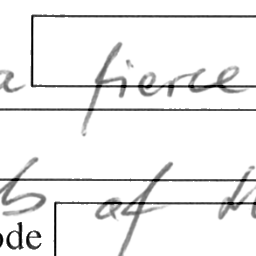 a fierce
of
ode